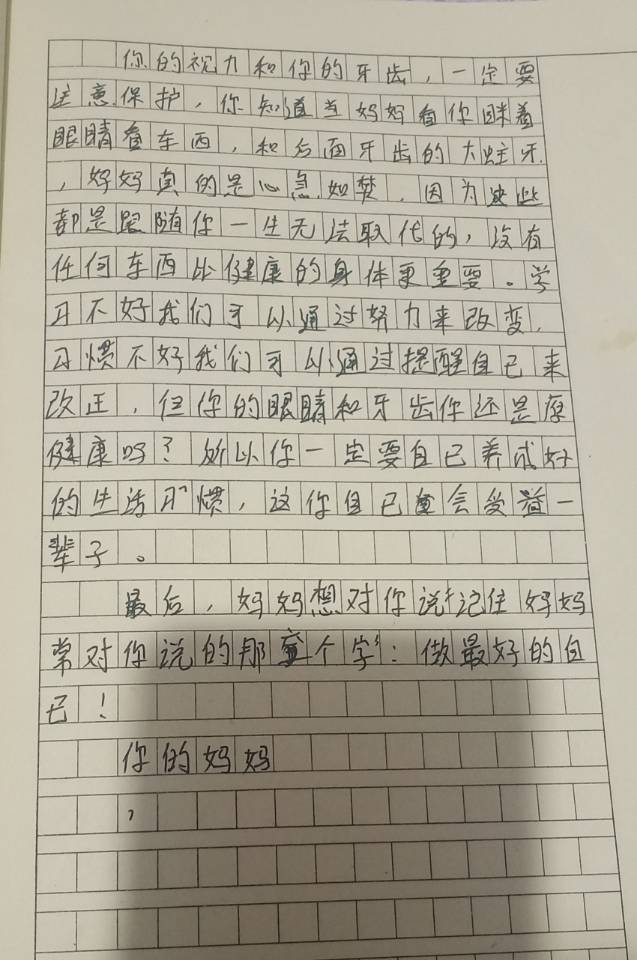 你的视力和你的牙齿，一定要
注意保护，你知道当妈妈看你眯着
眼睛看东西，和后面牙齿的大蛀牙
，妈妈真的是心急如焚，因为这些
都是跟随你一生无法取代的，没有
任何东西比健康的身体更重要。学
习不好我们可以通过努力来改变，
习惯不好我们可以通过提醒自己来
改正，但你的眼睛和牙齿你还是原
健康吗？所以你一定要自己养成好
的生活习惯，这你自己会受益一
辈子。
最后，妈妈想对你说：记住妈妈
常对你说的那个字：做最好的自
己！
你的妈妈
，